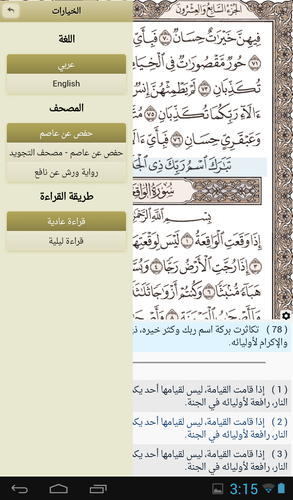 الخيارات
اللغة
عربي
English
المصحف
حفص عن عاصم
حفص عن عاصم - مصحف التجويد
رواية ورش عن نافع
طريقة القراءة
قراءة عادية
قراءة ليلية
الجزء السابع والعشرون
فِيهِنَّ خَيْرَٰتٌ حِسَانٌ ٧٠ فَبِأَيِّ
٧١ حُورٌ مَّقْصُورَٰتٌ فِي ٱلْخِيَا
تُكَذِّبَانِ ٧٣ لَمْ يَطْمِثْهُنَّ إِنسٌ
ءَالَآءِ رَبِّكُمَا تُكَذِّبَانِ ٧٥
وَعَبْقَرِيٍّ حِسَانٍ ٧٦ فَبِأَيِّ ءَا
تَبَٰرَكَ ٱسْمُ رَبِّكَ ذِي ٱلْجَ
سورة الواقعة
بِسْمِ ٱللَّهِ ٱلرَّحْمَٰ
إِذَا وَقَعَتِ ٱلْوَاقِعَةُ ١ لَيْسَ لِوَقْعَتِهَا
٣ إِذَا رُجَّتِ ٱلْأَرْضُ رَجًّا ٤ وَبُسَّ
هَبَآءً مُّنۢبَثًّا ٦ وَكُنتُمْ أَزْوَٰجًا ثَلَٰثَ
( 78 ) تكاثرت بركة اسم ربك وكثر خيره، ذي
والإكرام لأوليائه.
( 1 ) إذا قامت القيامة، ليس لقيامها أحد يك
النار، رافعة لأوليائه في الجنة.
( 2 ) إذا قامت القيامة، ليس لقيامها أحد يك
النار، رافعة لأوليائه في الجنة.
( 3 ) إذا قامت القيامة، ليس لقيامها أحد يك
3:15